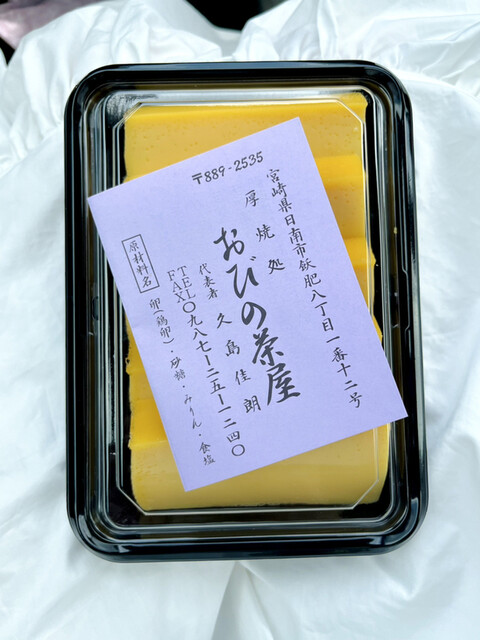 〒889-2535
宮崎県日南市飫肥八丁目一番十二号
厚焼処
おびの茶屋
代表者 久島佳朗
TEL
FAX 〇九八七ー二五ー一二四〇
原材料名
卵(鶏卵)・砂糖・みりん・食塩